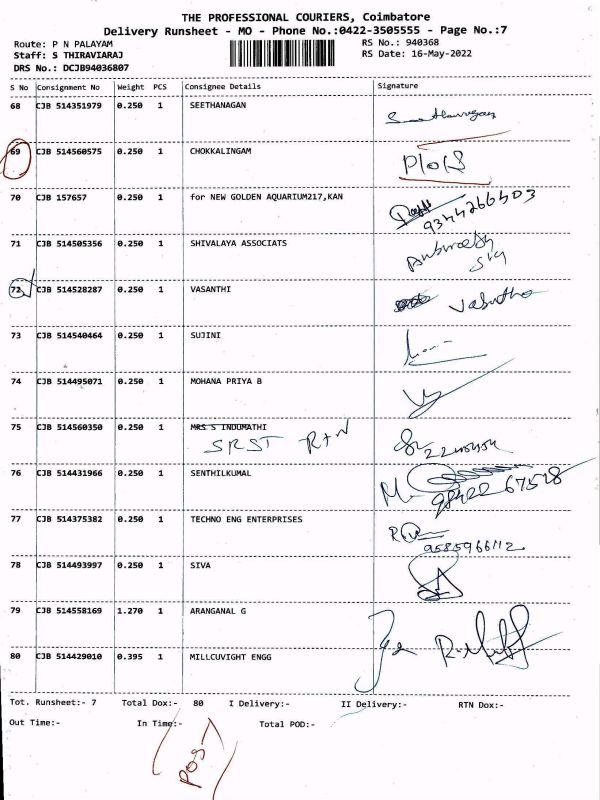 THE PROFESSIONAL COURIERS, Coimbatore
Delivery Runsheet - MO - Phone No.:0422-3505555 - Page No.:7
Route: P N PALAYAM RS No.: 940368
Staff: S THIRAVIARAJ RS Date: 16-May-2022
DRS No.: DCJB94036807
S No Consignment No Weight PCS Consignee Details Signature
68 CJB 514351979 0.250 1 SEETHANAGAN
69 CJB 514560575 0.250 1 CHOKKALINGAM
70 CJB 157657 0.250 1 for NEW GOLDEN AQUARIUM217,KAN
71 CJB 514505356 0.250 1 SHIVALAYA ASSOCIATS
72 CJB 514528287 0.250 1 VASANTHI
73 CJB 514540464 0.250 1 SUJINI
74 CJB 514495071 0.250 1 MOHANA PRIYA B
75 CJB 514560350 0.250 1 MRS S INDUMATHI
76 CJB 514431966 0.250 1 SENTHILKUMAL
77 CJB 514375382 0.250 1 TECHNO ENG ENTERPRISES
9585966112
78 CJB 514493997 0.250 1 SIVA
79 CJB 514558169 1.270 1 ARANGANAL G
80 CJB 514429010 0.395 1 MILLCUVIGHT ENGG
Tot. Runsheet:- 7 Total Dox:- 80 I Delivery:- II Delivery:- RTN Dox:-
Out Time:- In Time:- Total POD:-